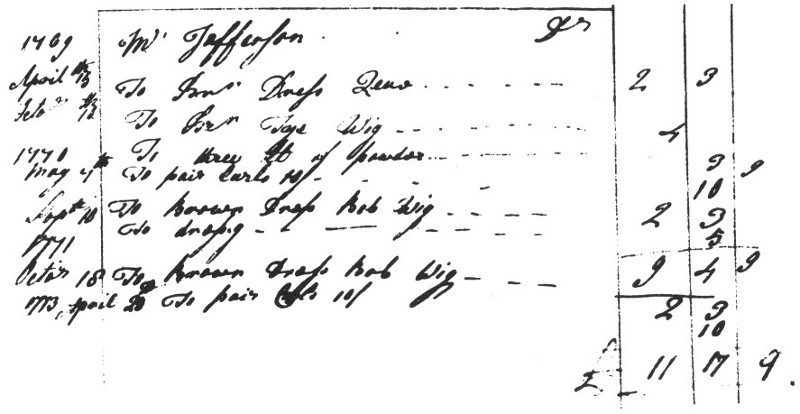 1769 Mr Jefferson Dr
April th 13 To Brn Dress Queue 2 3
Febr th 12 To Brn Tye Wig 4
1770 To three lb of powder 3 9
May 4th To pair Curls 10/ 10
Septr 10 To Brown Dress Bob Wig 2 3
To dressg 5
1771 9 4 9
Octor 18 To Brown Dress Bob Wig 2 3
1773 April 20 To pair Curls 10/ 10
£ 11 17 9.